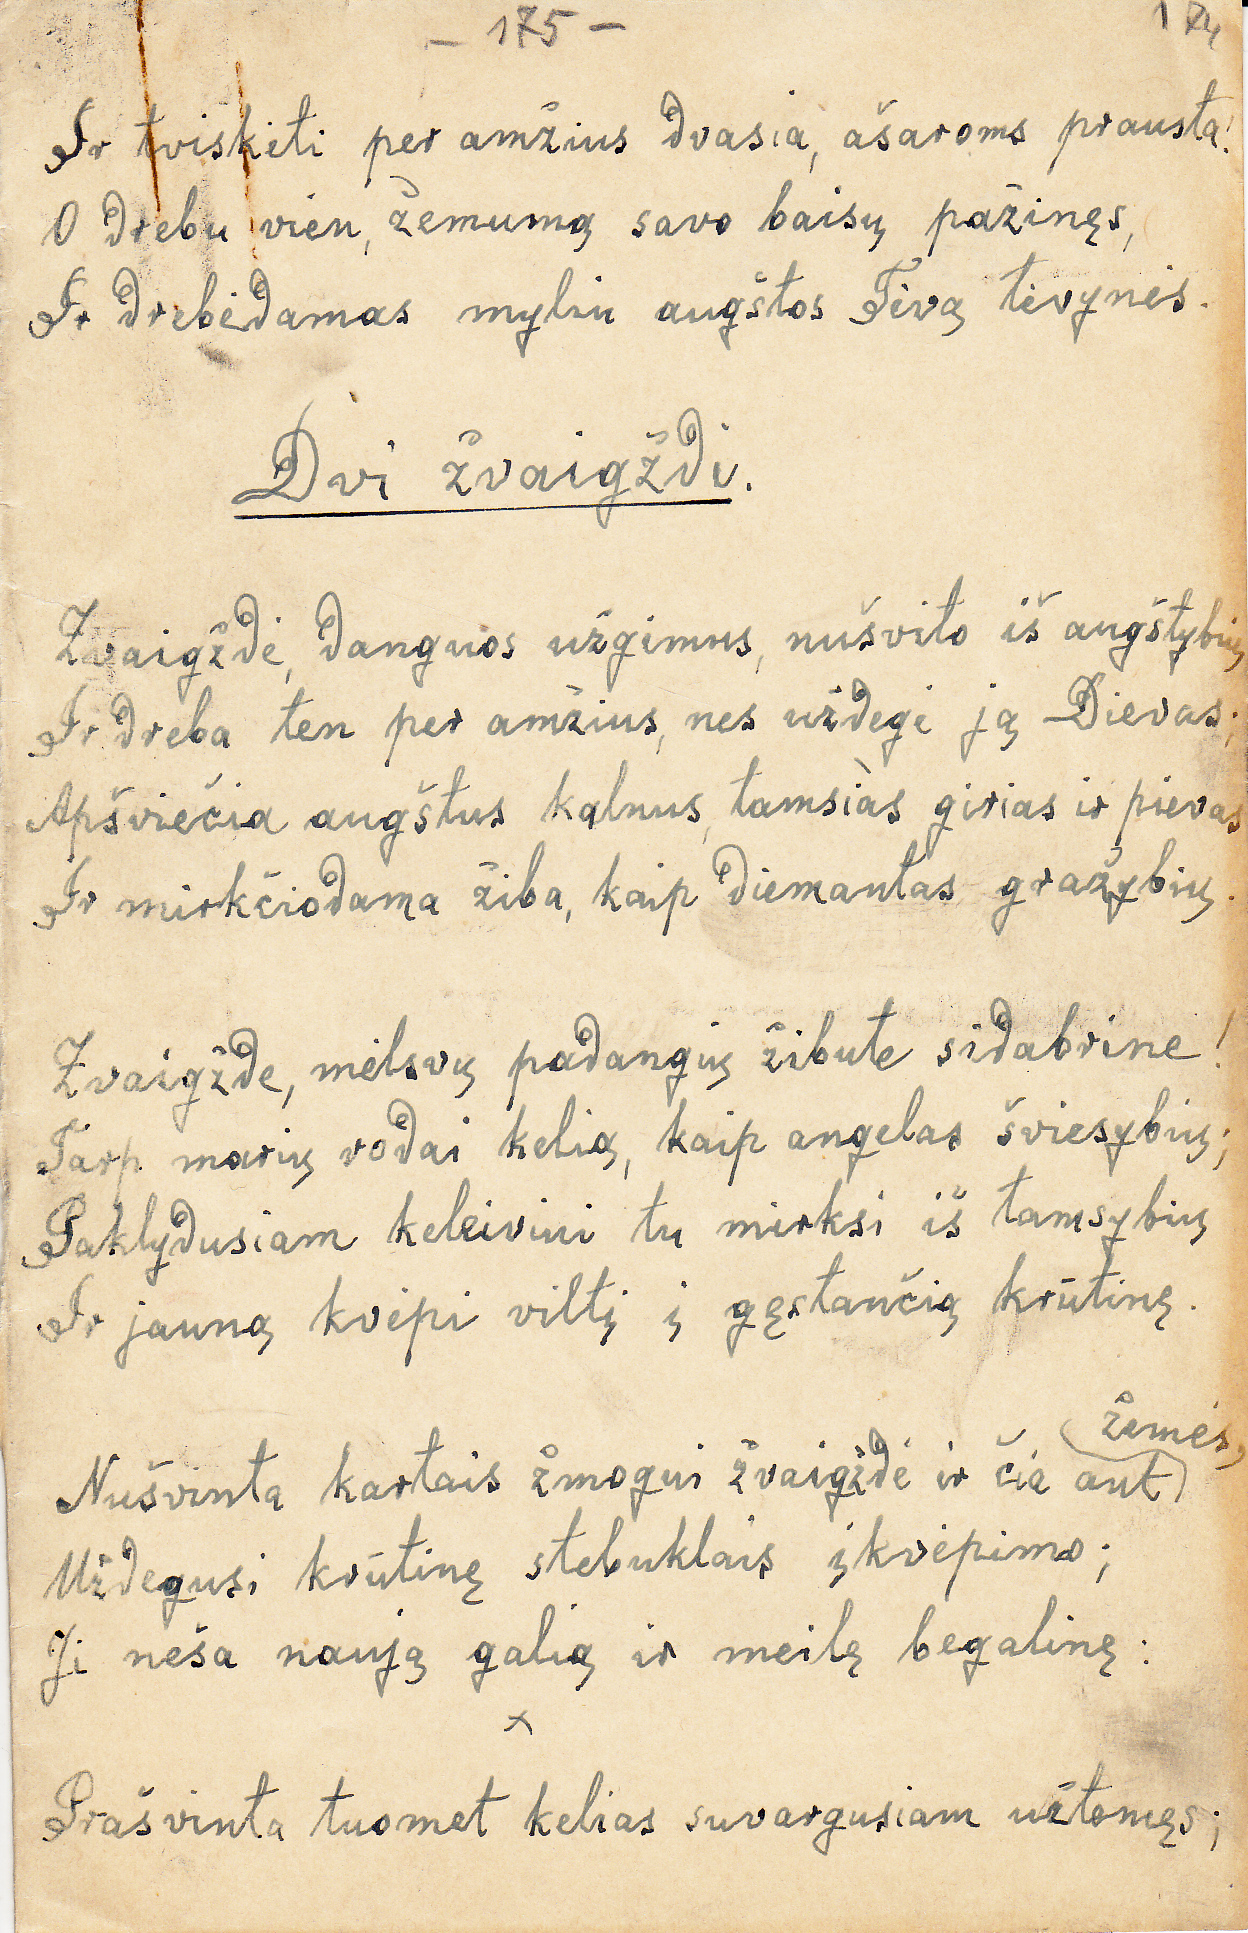 – 175 –
174
Ir tviskėti per amžius dvasia, ašaroms prausta!
O drebu vien, žemumą savo baisų pažinęs,
Ir drebėdamas myliu augštos Tėvą tėvynės.
Dvi žvaigždi.
Žvaigždė, danguos užgimus, nušvito iš augštybių
Ir dreba ten per amžius, nes uždegė ją Dievas;
Apšviečia augštus kalnus, tamsiàs girias ir pievas
Ir mirkčiodama žiba, kaip diemantas gražybių.
Žvaigžde, mėlsvų padangių žibute sidabrine!
Tarp marių rodai kelią, kaip angelas šviesybių;
Paklydusiam keleiviui tu mirksi iš tamsybių
Ir jauną kvėpi viltį į gęstančią krūtinę.
žemės,
Nušvinta kartais žmogui žvaigždė ir čia ant
Uždegusi krūtinę stebuklais įkvėpimo;
Ji neša naują galią ir meilę begalinę:
x
Prašvinta tuomet kelias suvargusiam užtemęs;